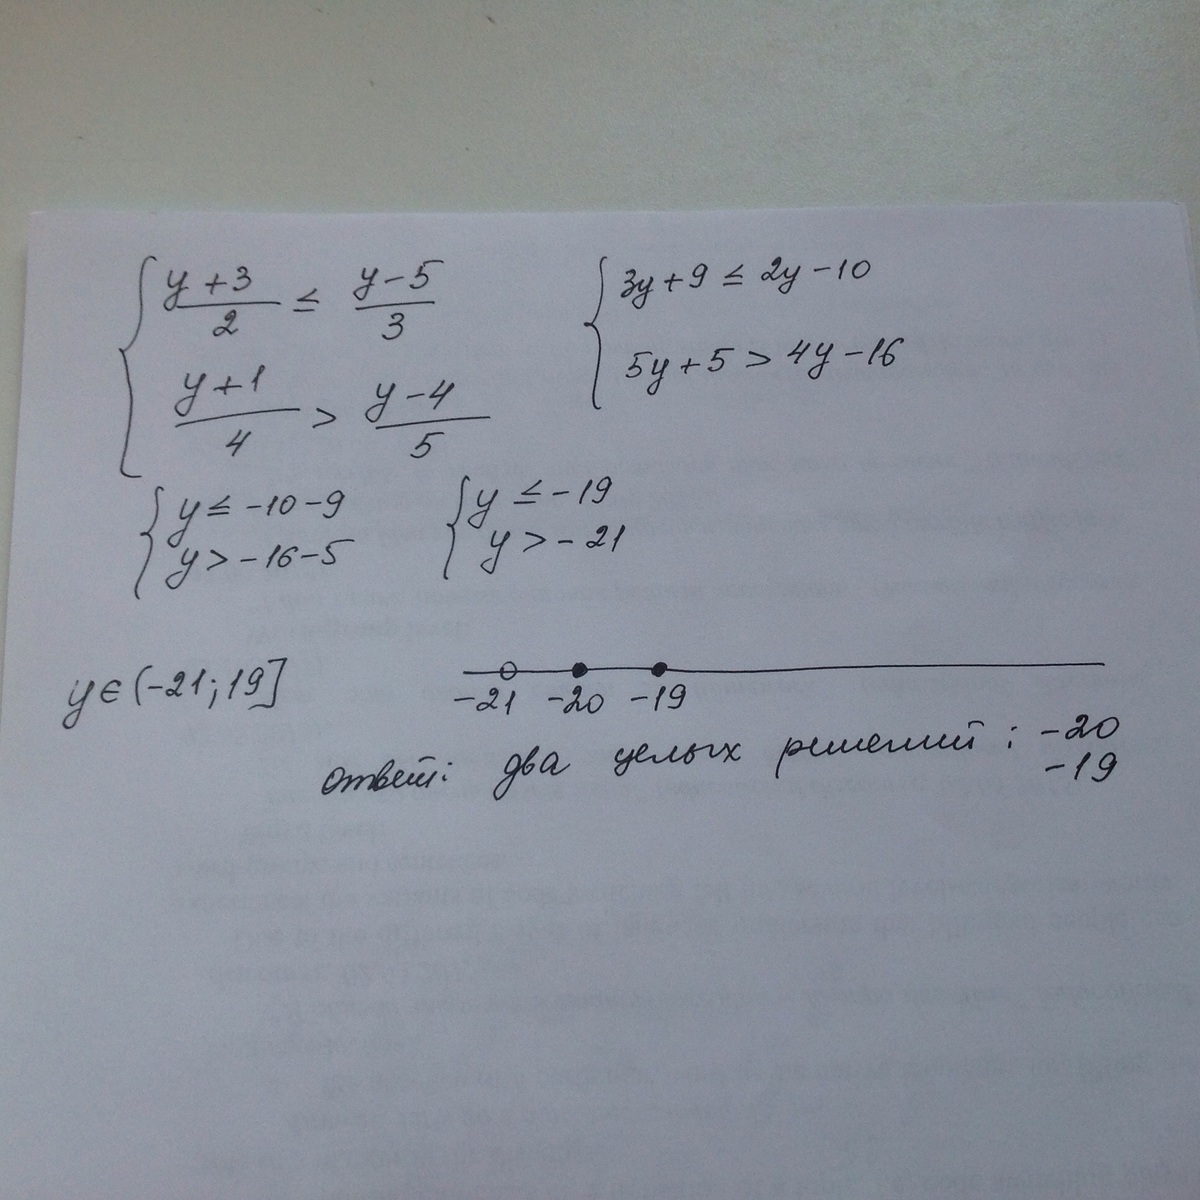 { (y+3)/2 ≤ (y-5)/3
(y+1)/4 > (y-4)/5
{ 3y+9 ≤ 2y-10
5y+5 > 4y-16
{ y ≤ -10-9
y > -16-5
{ y ≤ -19
y > -21
y ∈ (-21; 19]
-21 -20 -19
ответ: два целых решений: -20
-19